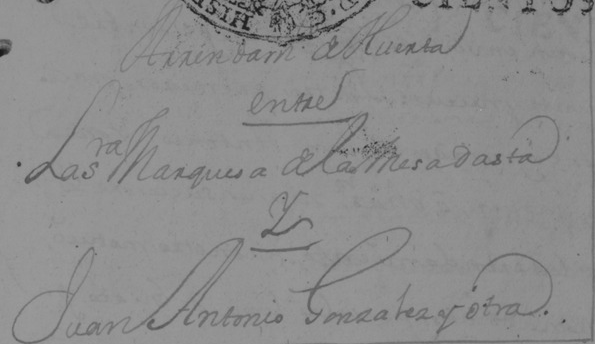 HISP
CIENTOS
Arrindam de Huerta
entre
La sra Marquesa de la Mesa dasta
Y
Juan Antonio Gonzalez y otra.